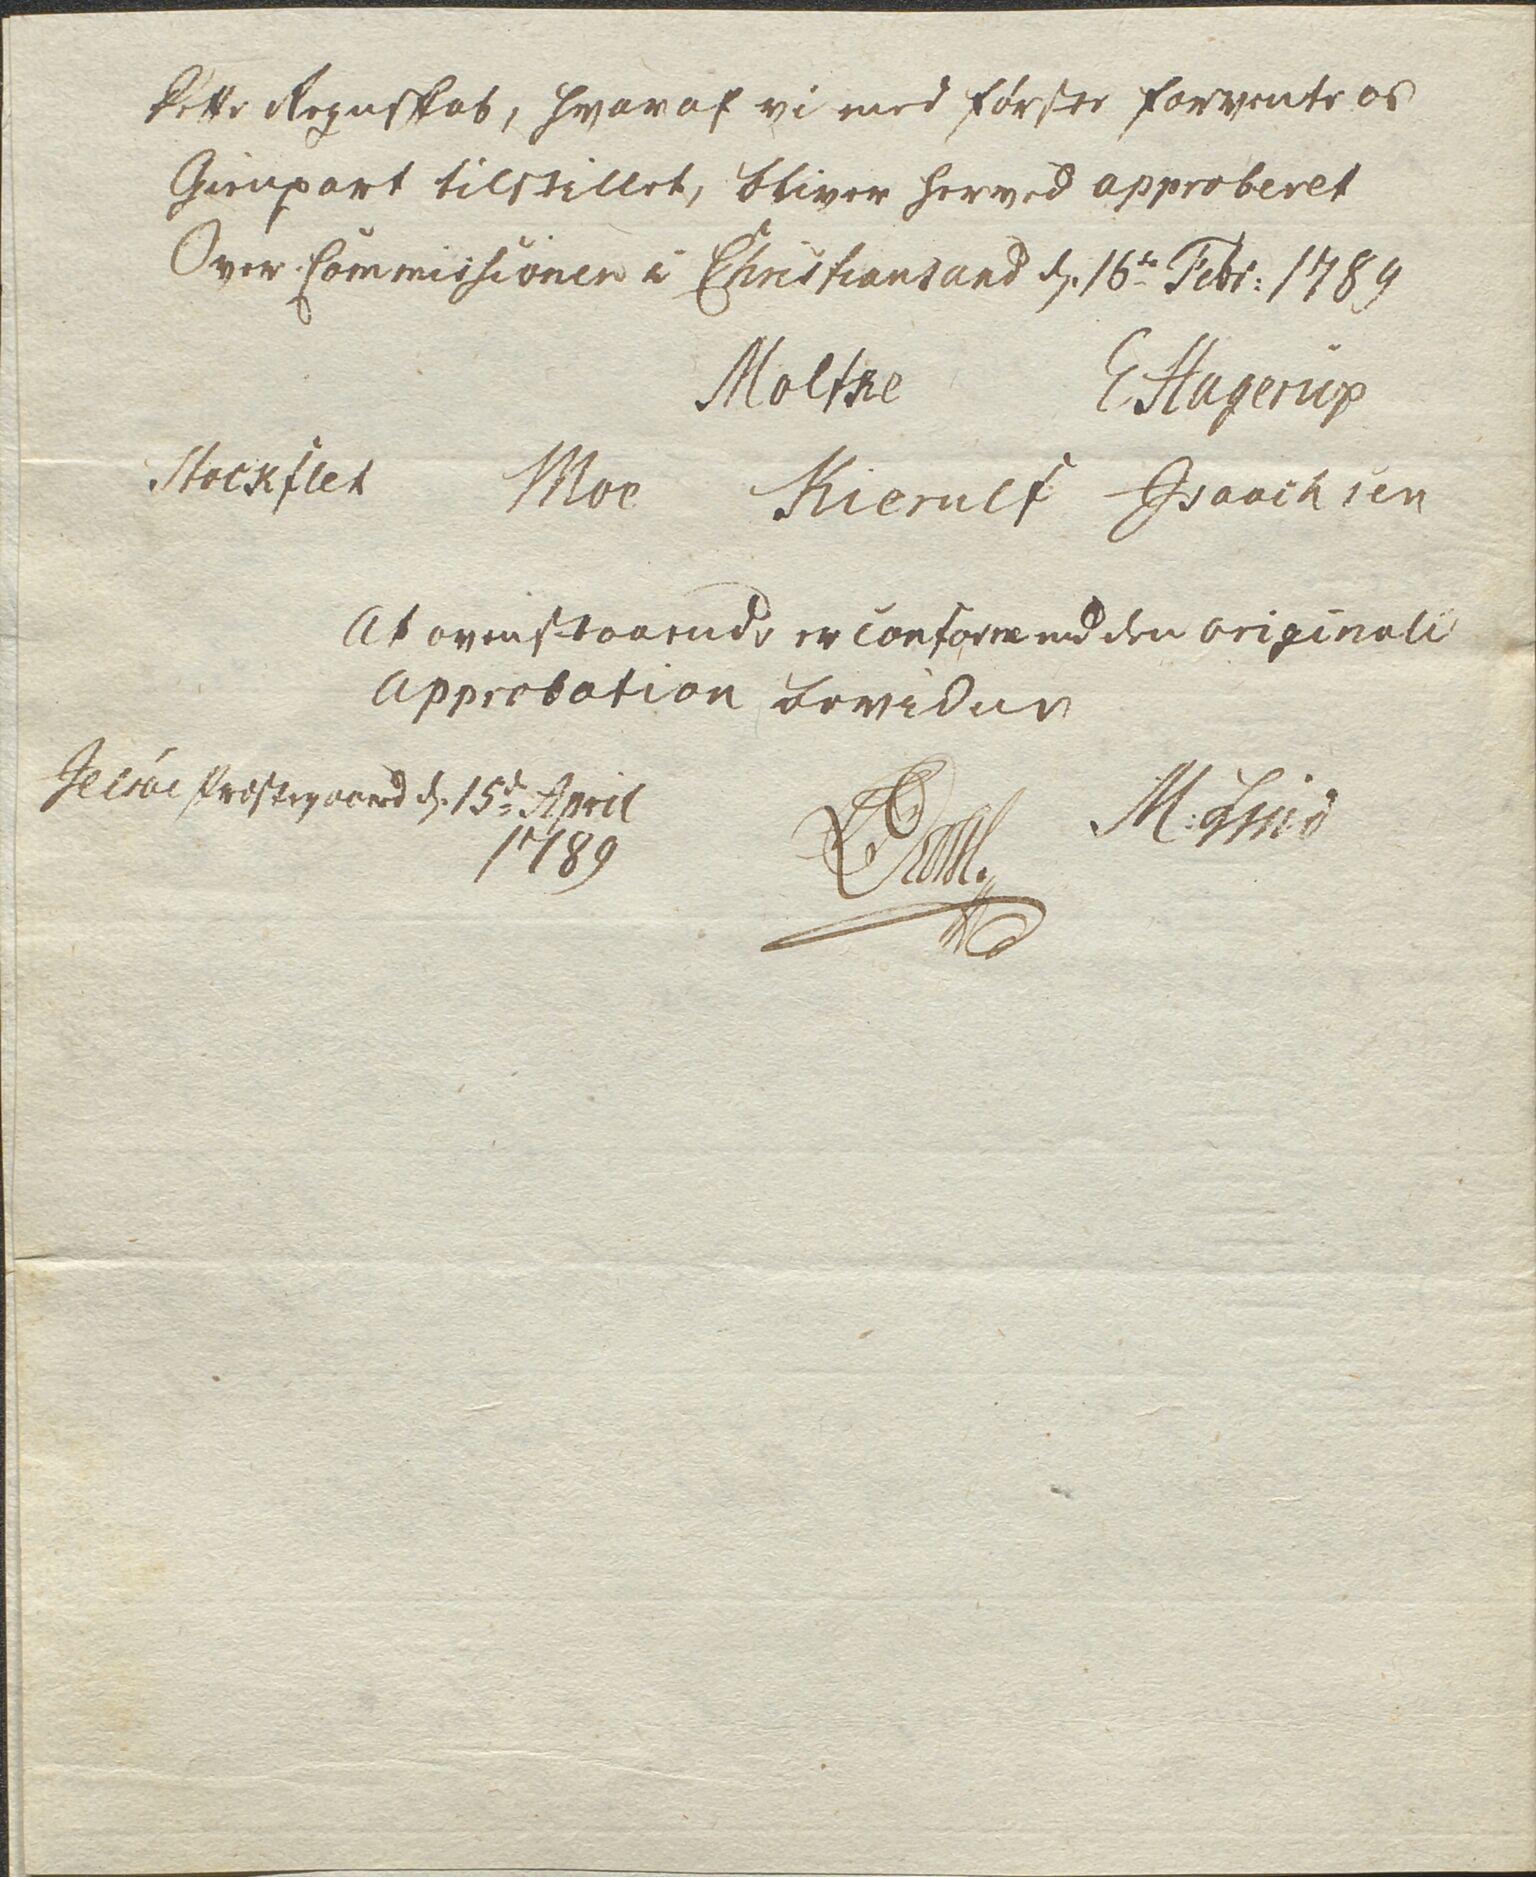 Dette Regnskab, hvoraf vi med første forvente os
Gienpart tilstillet, bliver herved approberet
Over-Commissionen i Christiansand d. 16de Febr: 1789
Moltke E Hagerup
Stockflet Moe Kierulf Isaachsen
At ovenstaaende er conform med den originale
Approbation bevidner
Jelsøe Præstegaard d. 15de April
1789
M: